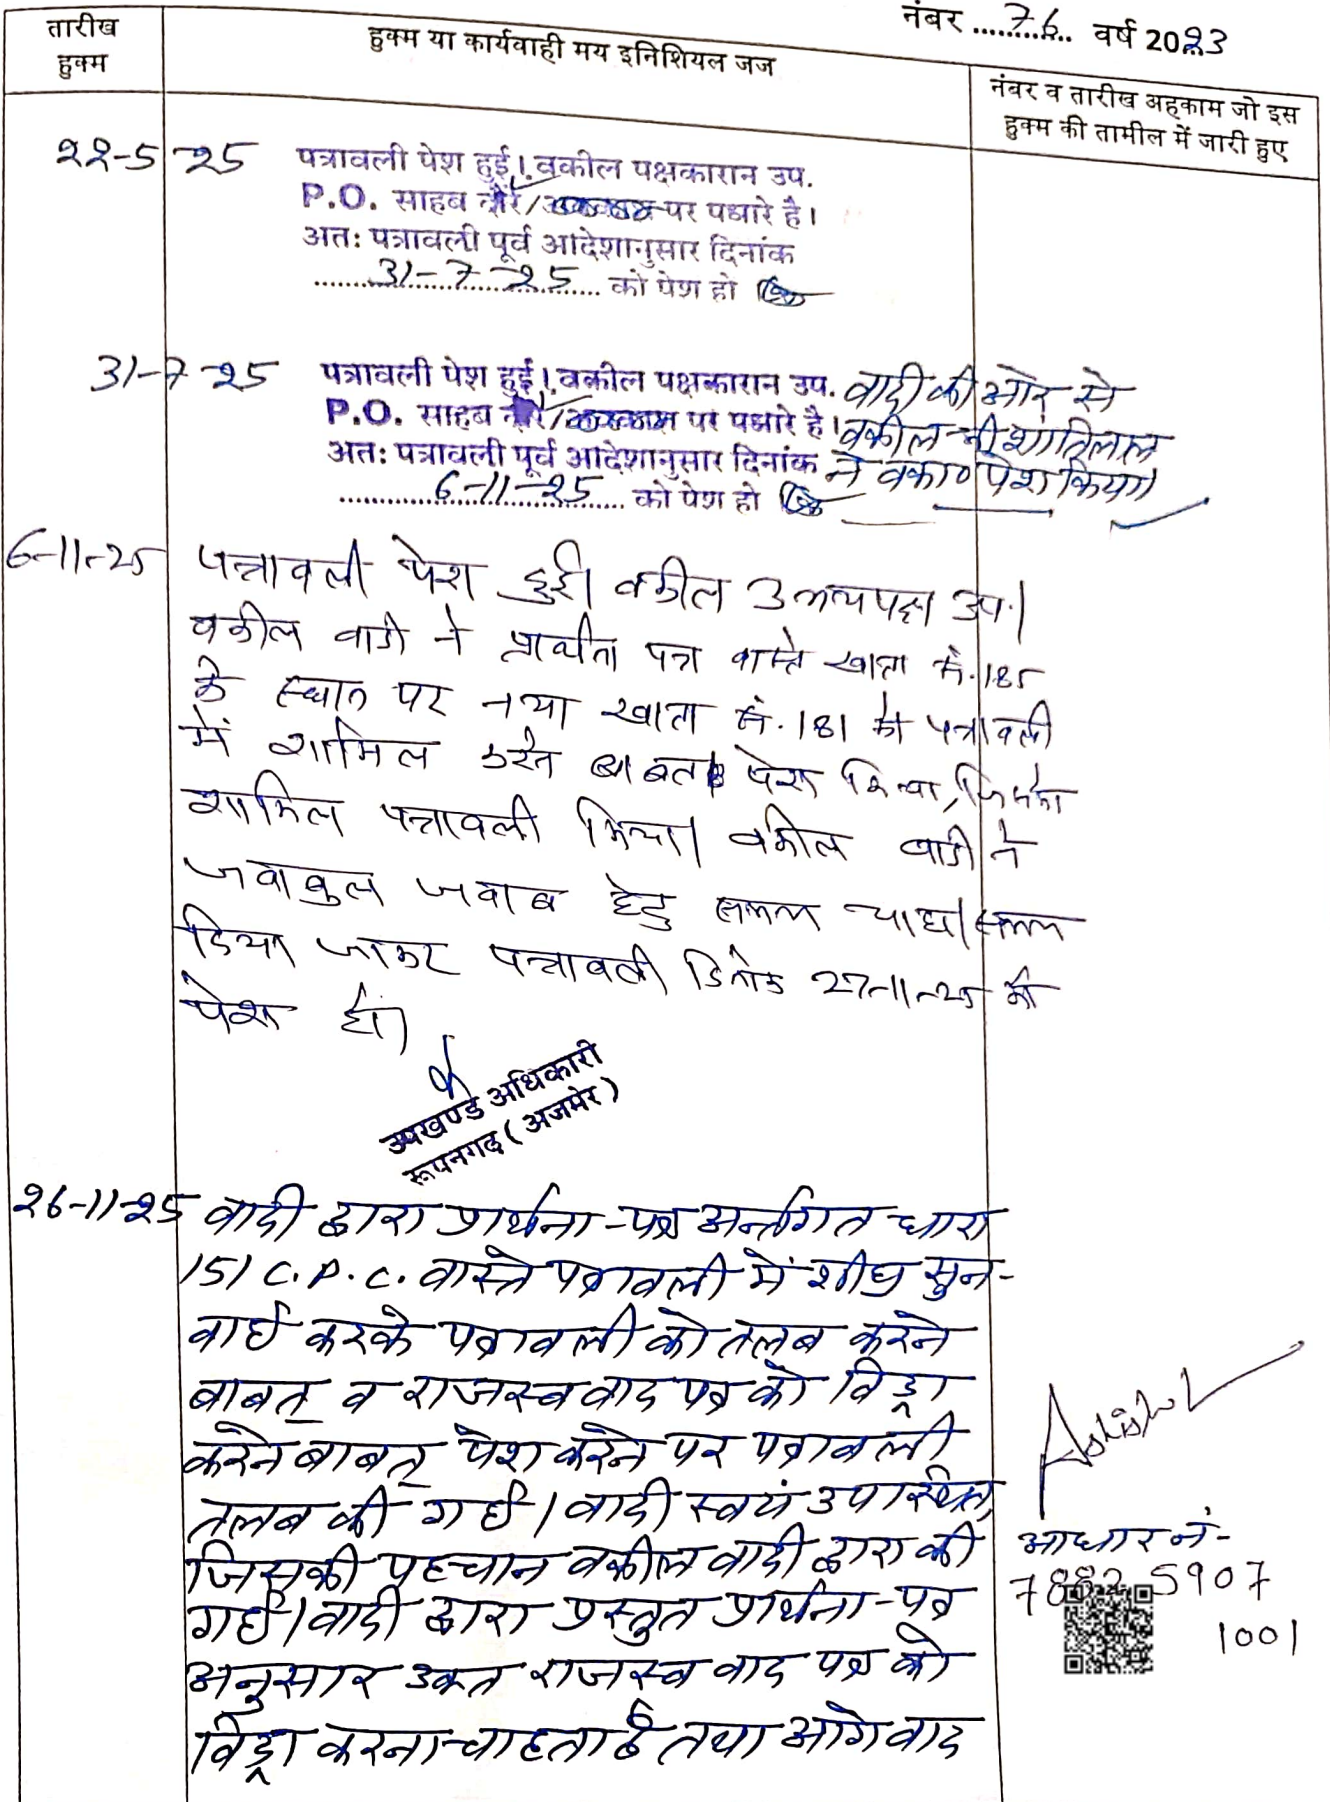 नंबर ....76.... वर्ष 2023
तारीख
हुक्म
हुक्म या कार्यवाही मय इनिशियल जज
नंबर व तारीख अहकाम जो इस
हुक्म की तामील में जारी हुए
22-5-25 पत्रावली पेश हुई। वकील पक्षकारान उप.
P.O. साहब दौरे/ पर पधारे है।
अतः पत्रावली पूर्व आदेशानुसार दिनांक
31-7-25 को पेश हो
31-7-25 पत्रावली पेश हुई। वकील पक्षकारान उप. वादी की ओर से
P.O. साहब दौरे/ पर पधारे है। वकील श्री शांतिलाल
अतः पत्रावली पूर्व आदेशानुसार दिनांक ने वका० पेश किया।
6-11-25 को पेश हो
6-11-25 पत्रावली पेश हुई। वकील उभयपक्ष उप.।
वकील वादी ने प्रार्थना पत्र वास्ते खाता सं. 185
के स्थान पर नया खाता सं. 181 को पत्रावली
में शामिल करने बाबत पेश किया, जिसको
शामिल पत्रावली किया। वकील वादी ने
जवाबुल जवाब हेतु समय चाहा। समय
दिया जाकर पत्रावली दिनांक 27-11-25 को
पेश हो।
उपखण्ड अधिकारी
रूपनगढ़ (अजमेर)
26-11-25 वादी द्वारा प्रार्थना-पत्र अर्न्तगत धारा
151 C.P.C. वास्ते पत्रावली में शीघ्र सुन-
वाई करके पत्रावली को तलब करने
बाबत् व राजस्व वाद पत्र को विड्रा
करने बाबत् पेश करने पर पत्रावली
तलब की गई। वादी स्वयं उपस्थित,
जिसकी पहचान वकील वादी द्वारा की
गई। वादी द्वारा प्रस्तुत प्रार्थना-पत्र
अनुसार उक्त राजस्व वाद पत्र को
विड्रा करना चाहता है तथा आगे वाद
Ashish
आधार नं-
7882 5907
1001